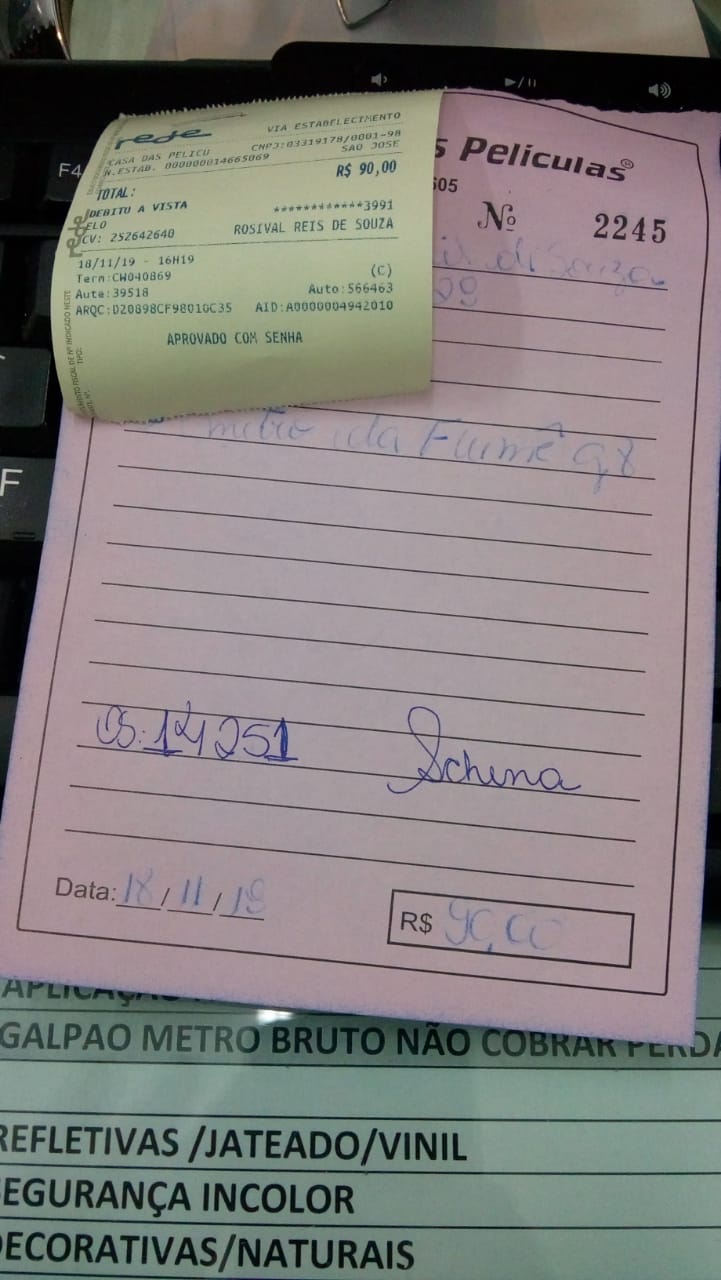 F4
rede
VIA ESTABELECIMENTO
CASA DAS PELICU CNPJ:03319178/0001-98
N.ESTAB. 000000014665069 SAO JOSE
TOTAL: R$ 90,00
DEBITO A VISTA ************3991
ELO
CV: 252642640 ROSIVAL REIS DE SOUZA
18/11/19 - 16H19
Term:CW040869 (C)
Aute:39518 Auto:566463
ARQC:D20898CF98010C35 AID:A0000004942010
APROVADO COM SENHA
rede
s Películas®
605
Nº 2245
di Souza
29
F
metro da Fumê g8
OS: 14251 Schena
Data: 18/11/19
R$ 90,00
APLICAÇÃO
GALPAO METRO BRUTO NÃO COBRAR PERDA
REFLETIVAS /JATEADO/VINIL
SEGURANÇA INCOLOR
DECORATIVAS/NATURAIS